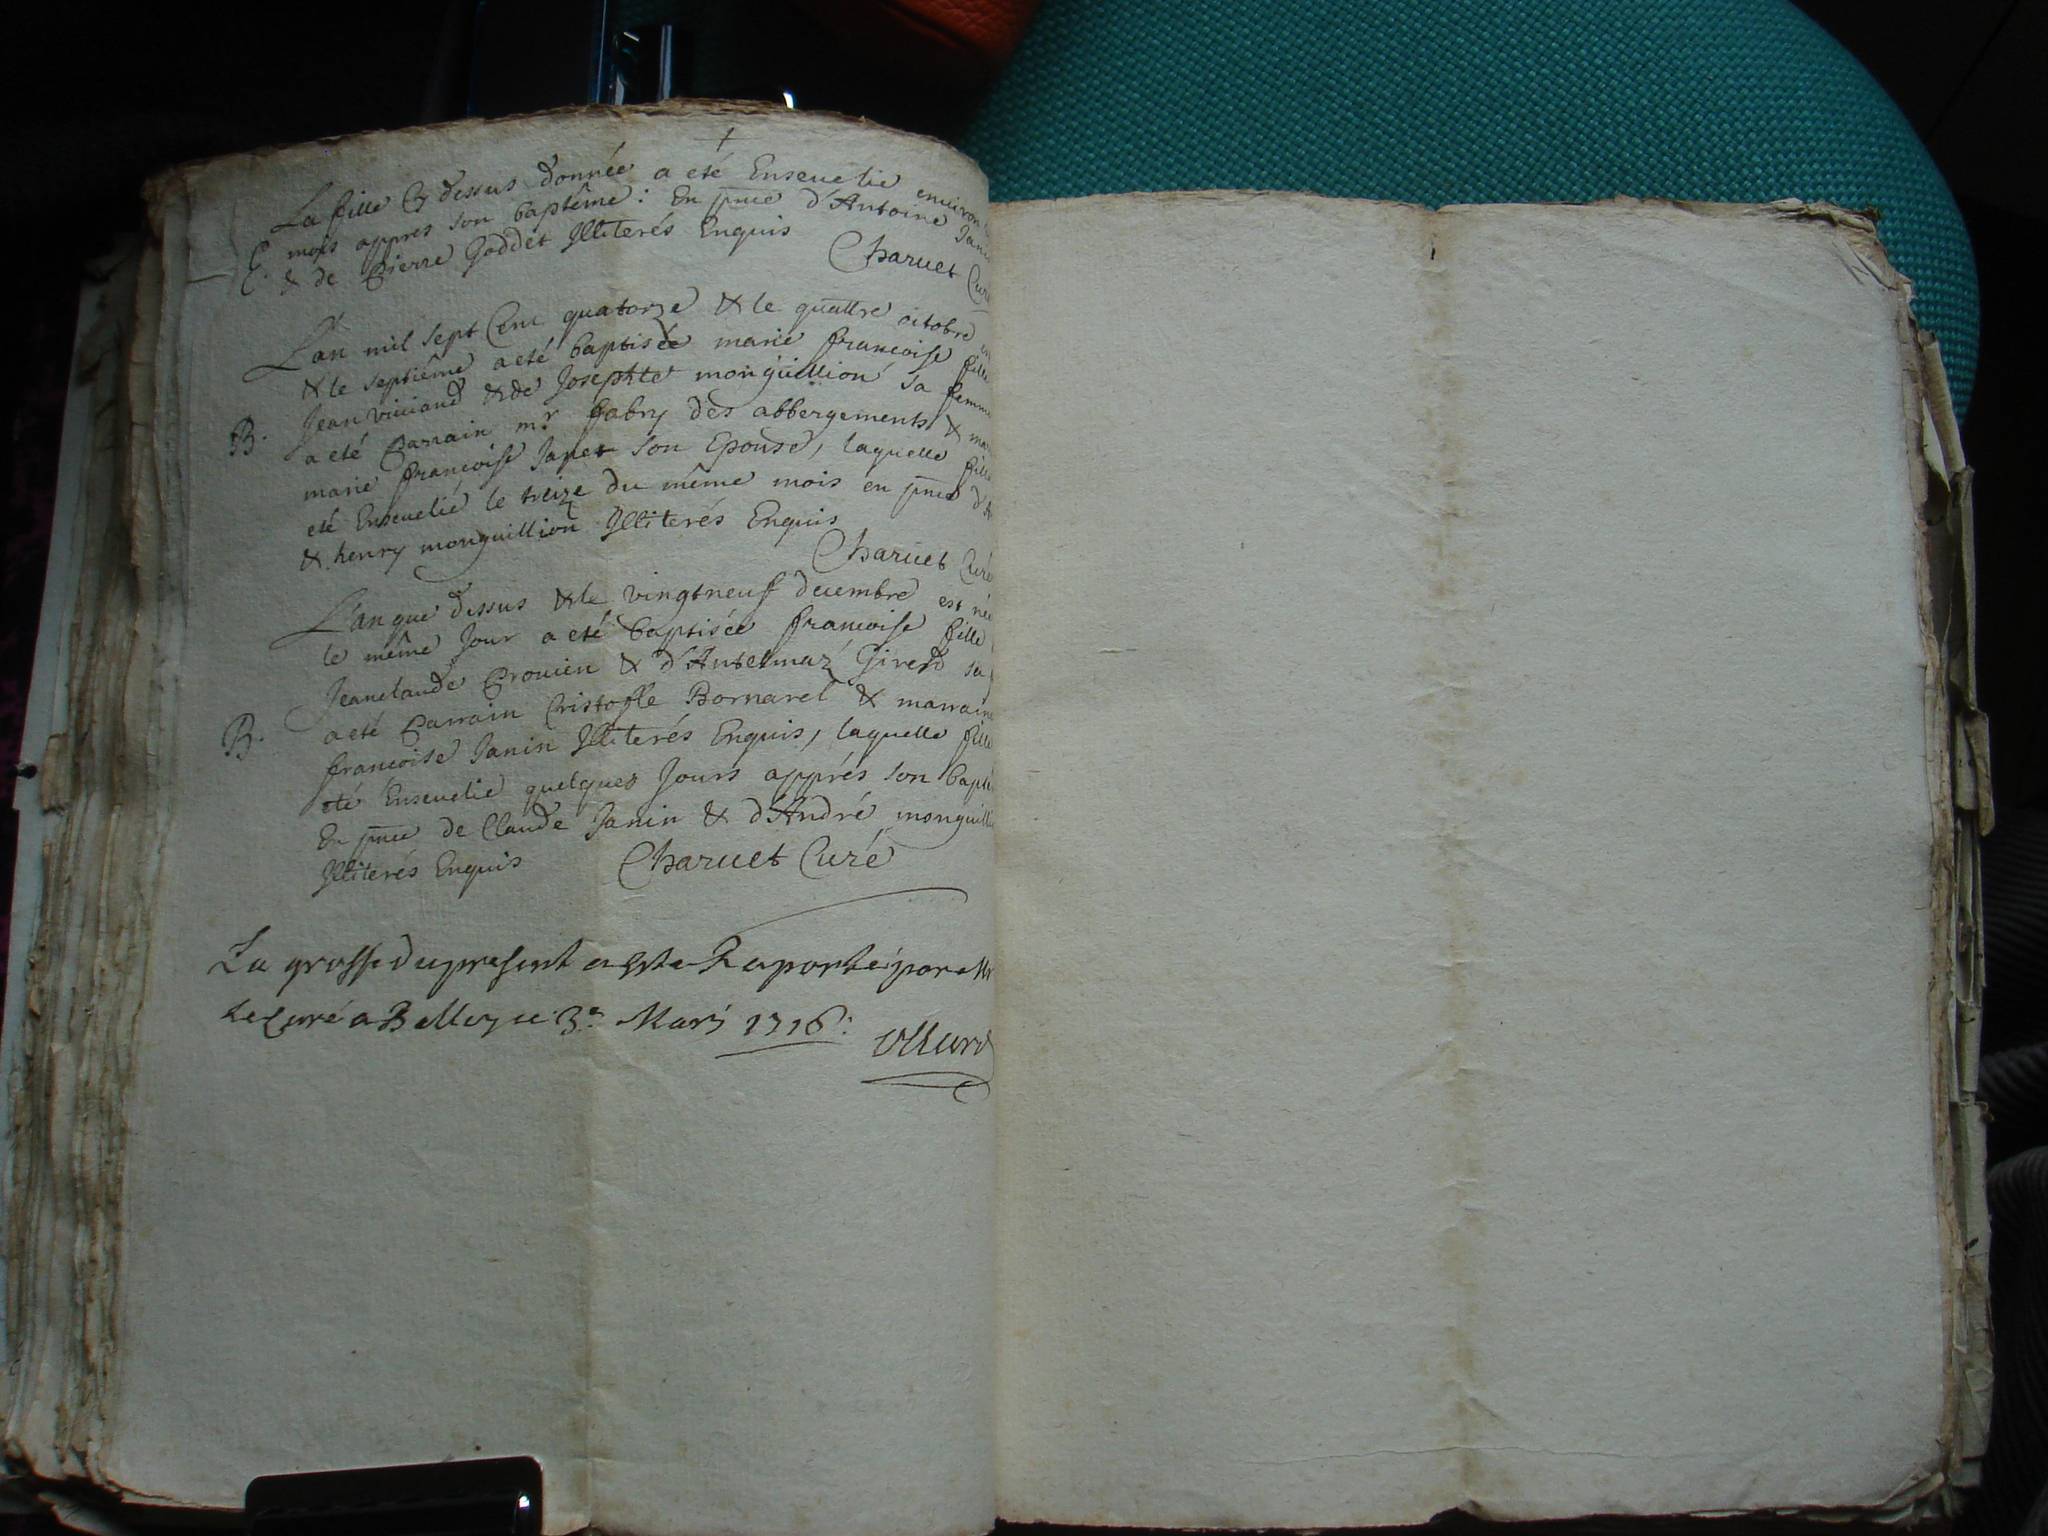 La fille Cy dessus donnée a eté Enseuelie enuiron
mois appres son baptême : En pnce d'Antoine Janin
E. & de Pierre Goddet Illiterés Enquis
Charuet Curé
L'an mil sept Cent quatorze & le quattre octobre
& le septiême a eté baptisée marie françoise fille
Jean viuiand & de Josephte monguillion sa femme
B. a eté Parrain mr. fabry des abbergements &
marie françoise Janet son Epouse, laquelle fille
eté Enseuelie le treize du même mois en pnce
& henry monguillion Illiterés Enquis
Charuet Curé
L'an que dessus & le vingtneuf decembre est née
le même Jour a eté baptisée françoise fille
Jeanclaude Prouien & d'Antelmaz Girerd sa
B. a eté Parrain Cristofle Bornarel & marraine
francoise Janin Illiterés Enquis, laquelle fille
eté Enseuelie quelques Jours apprés son bapt
En pnce de Claude Janin & d'André monguilli
Illiterés Enquis Charuet Curé
La grosse du present a esté Raportée par Mr
Le Curé a Belley ce 3e Mars 1716.